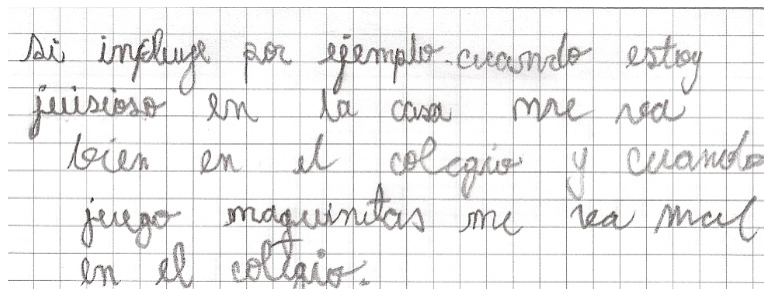 si influye por ejemplo. cuando estoy
juisioso en la casa me va
bien en el colegio y cuando
juego maquinitas me va mal
en el colegio.